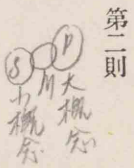 第二則
P 大概念
M
S 小概念